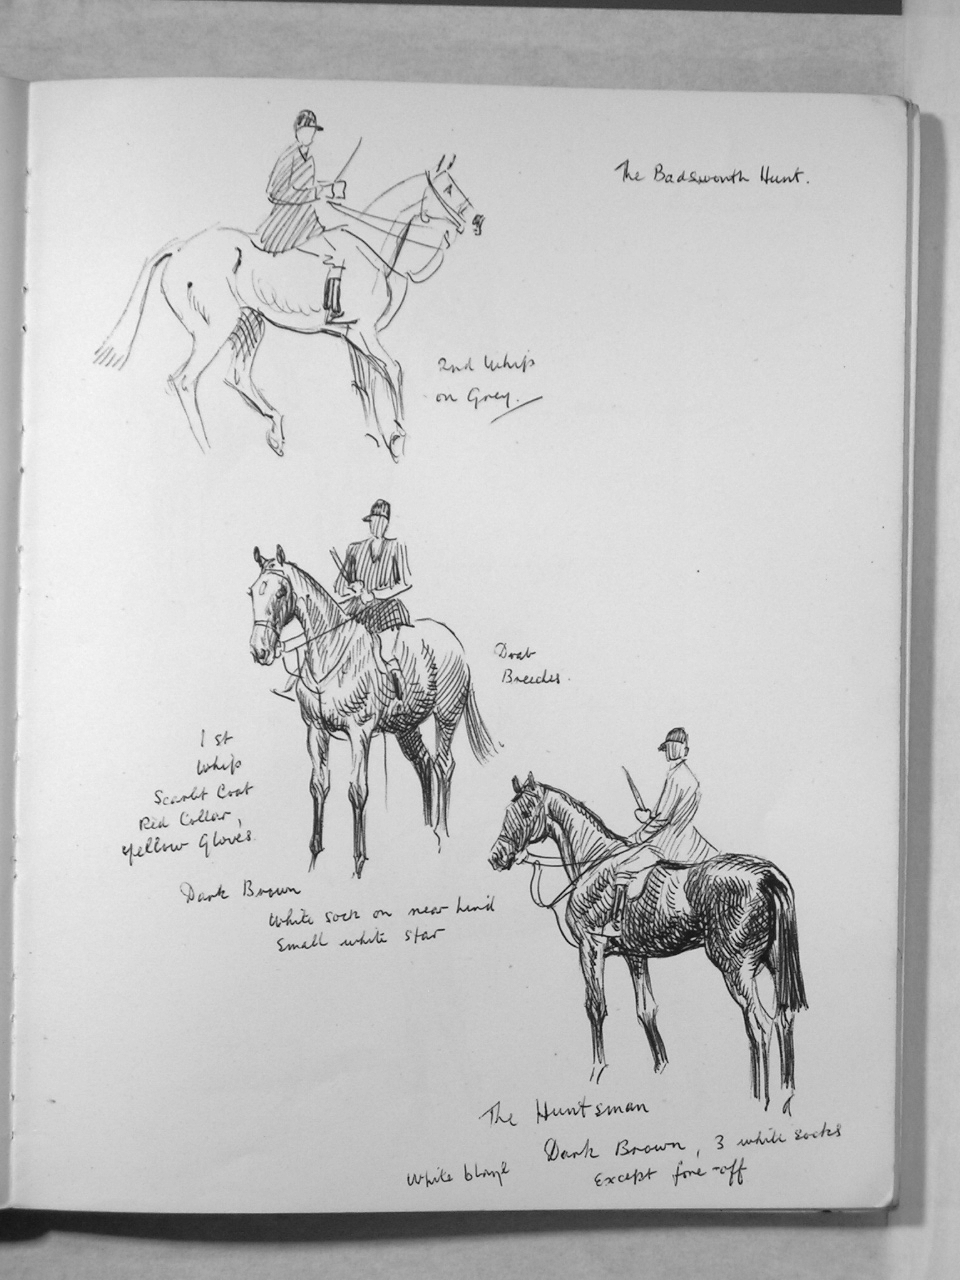 The Badsworth Hunt.
2nd Whip
on Grey.
Drab
Breeches.
1st
Whip
Scarlet Coat
Red Collar,
Yellow Gloves.
Dark Brown
White sock on near hind
Small white star
The Huntsman
Dark Brown, 3 white socks
Except fore-off
White blaze